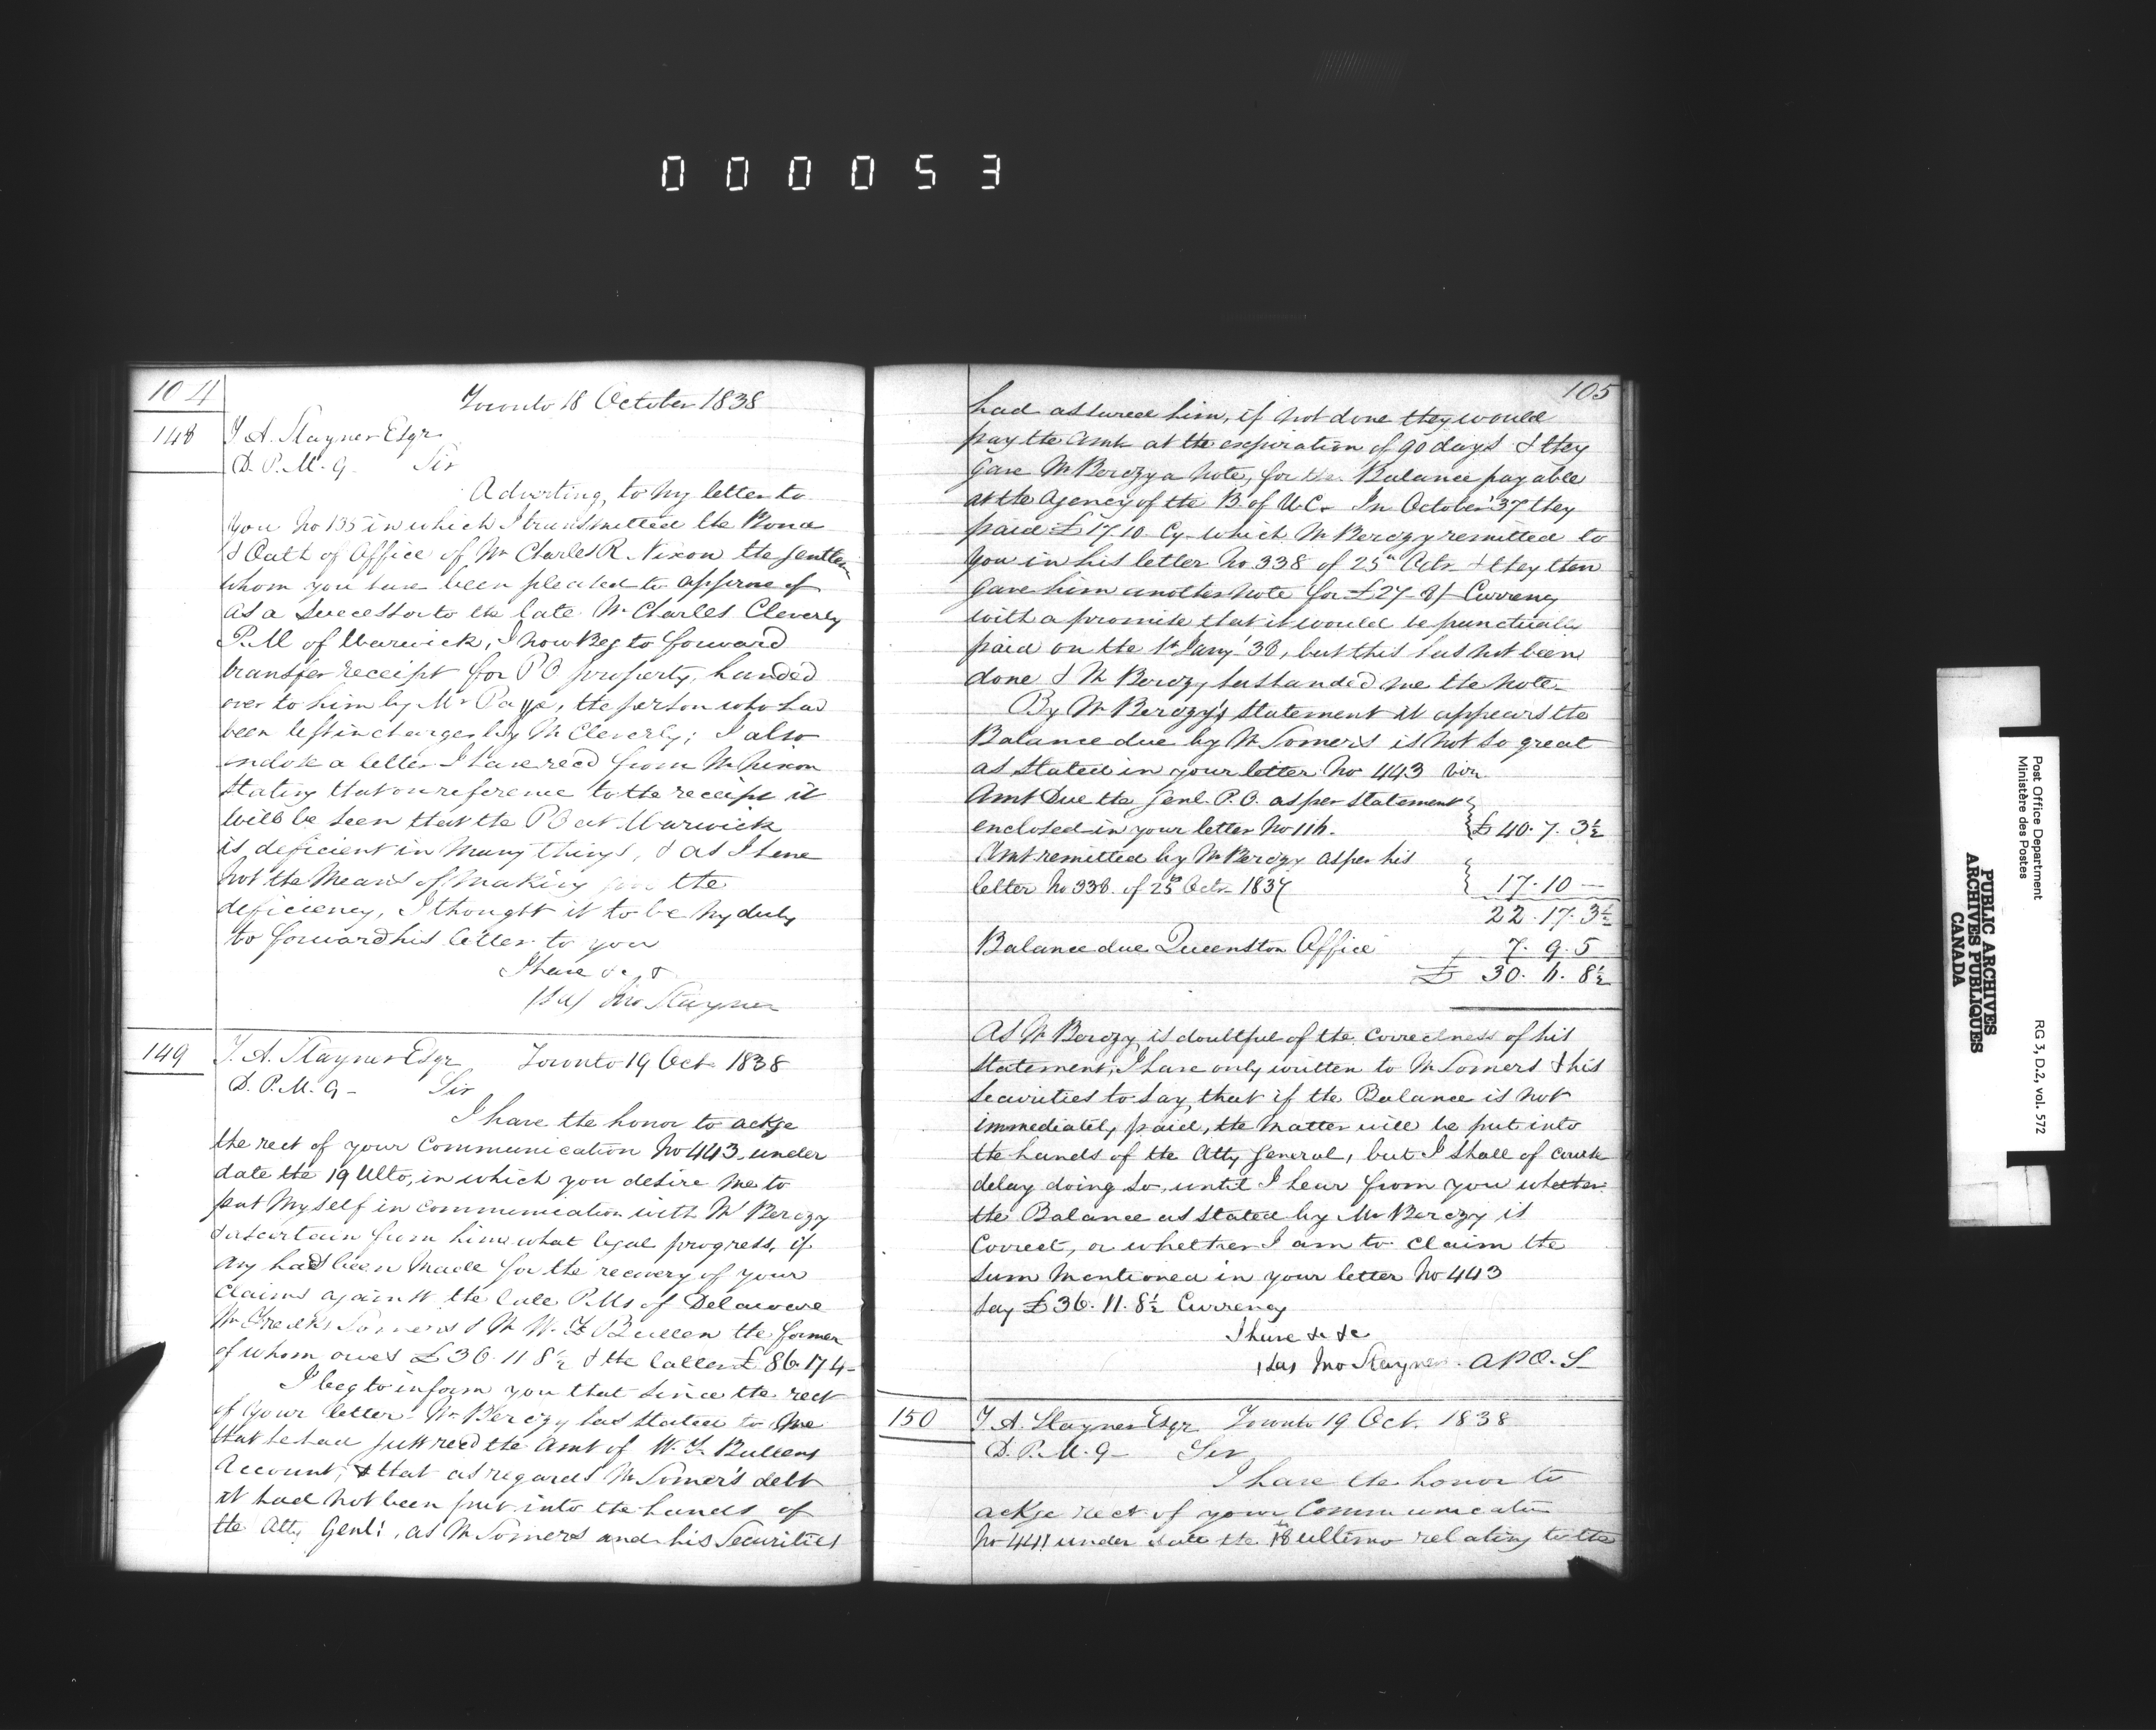 000053
104
Toronto 18 October 1838
148
T. A. Stayner Esqr
D. P. M. G. Sir
Adverting, to my letter to
you No 135 in which I transmitted the Bond
& Oath of Office of Mr Charles R. Nixon the gentlen
whom you have been pleased to approve of
as a Successor to the late Mr Charles Cleverly
P.M of Warwick, I now beg to forward
transfer receipt for PO property, handed
over to him by Mr the person who had
been left in charge by Mr Cleverly; I also
endose a letter I have recd from Mr Nixon
stating that on reference to the receipt it
will be seen that the PO at Warwick
is deficient in many things, & as I have
not the Means of Making the
deficiency, I thought it to be my duty
to forward his letter to you
I have &c &
(Sd) Jno Stayner
149
T. A. Stayner Esqr Toronto 19 Oct. 1838
D. P. M. G - Sir
I have the honor to ackge
the rect of your Communication No 443 under
date the 19 Ulto, in which you desire me to
put myself in communication with Mr Berczy
& ascertain from him what legal progress, if
any had been made for the recovery of your
Claims against the late P.Ms of Delaware
Mr Fredk Somers & Mr W. F. Bullen the former
of whom owes £36.11 8½ & the latter £86.17.4-
I beg to inform you that since the rect
of your letter Mr Berczy has stated to me
that he had just recd the Amt of W. F. Bullens
Account, & that as regards Mr Somer's debt
it had not been put into the hands of
the Atty Genl:, as Mr Somers and his Securities
105
had assured him, if not done they would
pay the amt at the expiration of 90 days & they
gave Mr Berczy a note, for the Balance payable
at the Agency of the B. of U.C. In October '37 they
paid £17.10 Cy which Mr Berczy remitted to
you in his letter No 338 of 25th Octr & they then
gave him another note for £27-8/ Currency
with a promise that it would be punctually
paid on the 1st Jany '38, but this has not been
done & Mr Berczy has handed me the note.
By Mr Berczy's statement it appears the
Balance due by Mr Somers is not so great
as stated in your letter No 443 viz.
Amt Due the Genl. P.O. as per statement
enclosed in your letter No 116. £40.7.3½
Amt remitted by Mr Berczy as per his
letter No 338. of 25th Octr 1837 17.10 —
22.17.3½
Balance due Queenston Office 7.9.5
£ 30.11.8½
As Mr Berczy is doubtful of the correctness of his
statement, I have only written to Mr Somers & his
Securities to say, that if the Balance is not
immediately paid, the matter will be put into
the hands of the Atty General, but I shall of course
delay doing so, until I hear from you whether
the Balance as stated by Mr Berczy is
Correct, or whether I am to claim the
sum mentioned in your letter No 443
say £36.11.8½ Currency
I have &c &c
(Sd) Jno Stayner. A P O. S-
150
T. A. Stayner Esqr Toronto 19 Oct. 1838
D. P. M. G - Sir
I have the honor to
ackge rect of your Communication
No 441 under date the 18th ultimo relating to the
Post Office Department RG 3, D.2, vol. 572
Ministère des Postes
PUBLIC ARCHIVES
ARCHIVES PUBLIQUES
CANADA